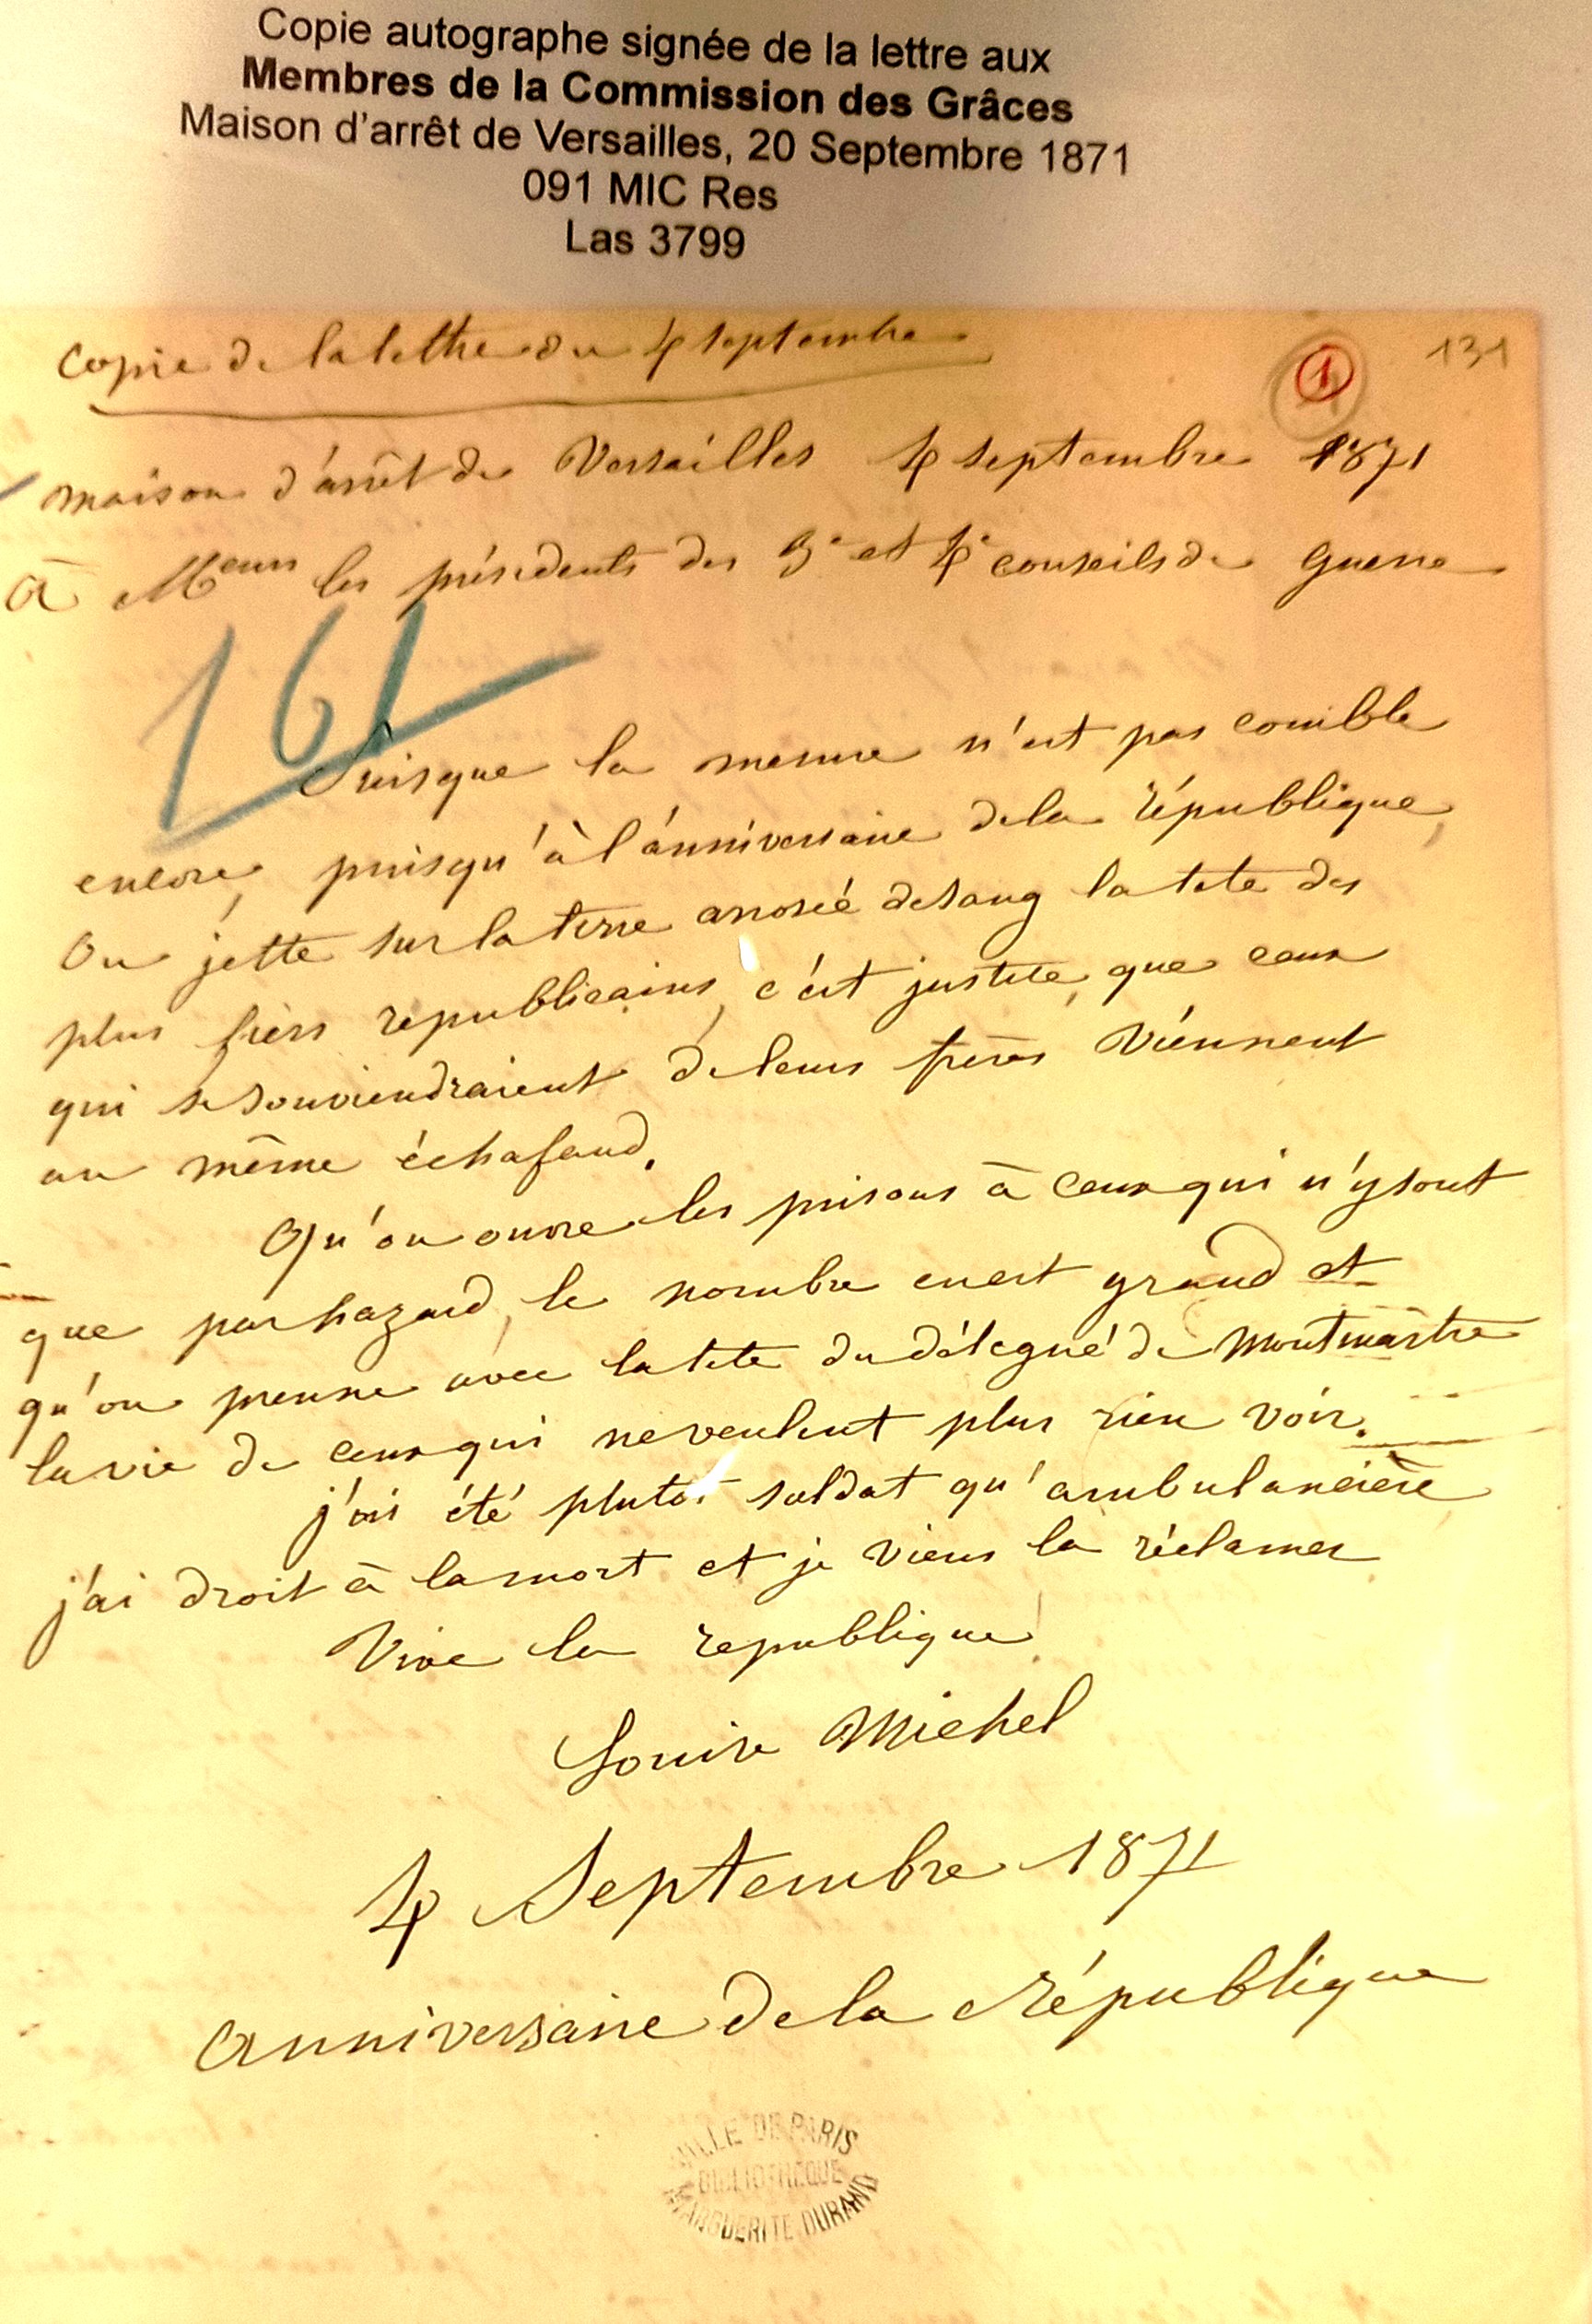 Copie autographe signée de la lettre aux
Membres de la Commission des Grâces
Maison d'arrêt de Versailles, 20 Septembre 1871
091 MIC Res
Las 3799
copie de la lettre du 4 septembre
1
131
maison d'arrêt de Versailles 4 septembre 1871
à Meurs les présidents des 3e et 4e conseils de guerre
161
Puisque la mesure n'est pas comble
encore, puisqu'à l'anniversaire de la république,
on jette sur la terre arrosée de sang la tete des
plus fiers republicains, c'est justice, que ceux
qui se souviendraient de leurs frères viennent
au même échafaud.
Qu'on ouvre les prisons à ceux qui n'y sont
que par hazard, le nombre en est grand et
qu'on prenne avec la tete du délégué de Montmartre
la vie de ceux qui ne veulent plus rien voir.
j'ai été plutot soldat qu'ambulancière
j'ai droit à la mort et je viens la réclamer
Vive la republique!
Louise Michel
4 Septembre 1871
anniversaire de la République
VILLE DE PARIS
BIBLIOTHEQUE
MARGUERITE DURAND